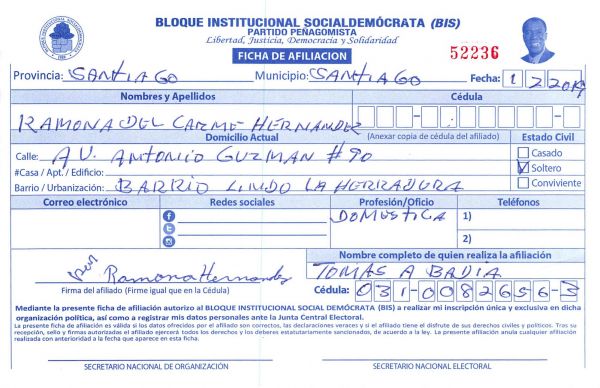 BLOQUE INSTITUCIONAL SOCIALDEMÓCRATA (BIS)
PARTIDO PEÑAGOMISTA
Libertad, Justicia, Democracia y Solidaridad
FICHA DE AFILIACION
52236
Provincia: SANTIAGO Municipio: SANTIAGO Fecha: 1 2 2019
Nombres y Apellidos Cédula
RAMONA DEL CARME HERNANDEZ
Domicilio Actual (Anexar copia de cédula del afiliado) Estado Civil
Calle: AV. ANTONIO GUZMAN #90 Casado
#Casa / Apt. / Edificio: Soltero
Barrio / Urbanización: BARRIO LINDO LA HERRADURA Conviviente
Correo electrónico Redes sociales Profesión/Oficio Teléfonos
DOMESTICA 1)
2)
Nombre completo de quien realiza la afiliación
Ramona Hernandez TOMAS A BADIA
Firma del afiliado (Firme igual que en la Cédula) Cédula: 031-0082656-3
Mediante la presente ficha de afiliación autorizo al BLOQUE INSTITUCIONAL SOCIAL DEMÓCRATA (BIS) a realizar mi inscripción única y exclusiva en dicha
organización política, así como a registrar mis datos personales ante la Junta Central Electoral.
La presente ficha de afiliación es válida si los datos ofrecidos por el afiliado son correctos, las declaraciones veraces y si el afiliado tiene el disfrute de sus derechos civiles y políticos. Tras su
recepción, sello y firmas autorizadas el afiliado ejercerá todos los derechos y los deberes estatutariamente sancionados, de acuerdo a la ley. La presente afiliación anula cualquier afiliación
realizada con anterioridad a la fecha que aparece en esta ficha.
SECRETARIO NACIONAL DE ORGANIZACIÓN SECRETARIO NACIONAL ELECTORAL